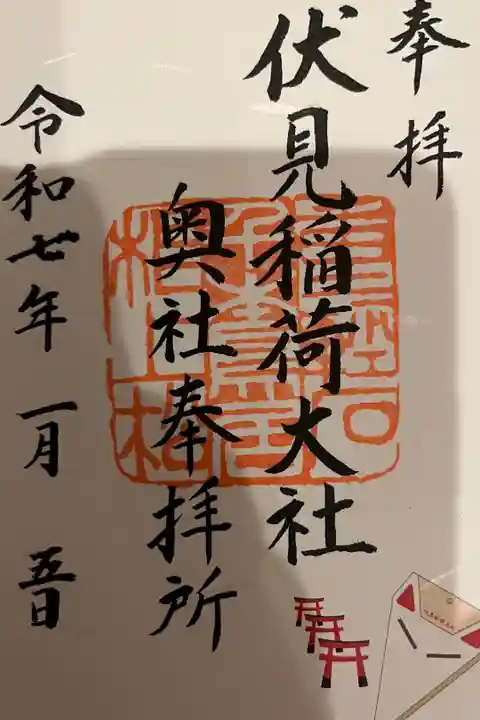 奉拝
伏見稲荷大社
奥社奉拝所
令和七年一月五日